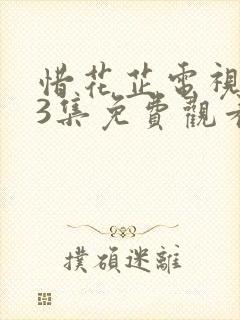 惜花芷電視
3集免費觀看
撲碩迷離